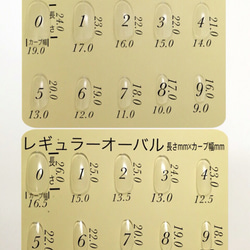 長さ
0 24.0 1 22.0 2 22.0 3 22.0 4 21.0
カーブ幅
19.0 17.0 16.0 15.0 14.0
5 20.0 6 19.0 7 18.0 8 17.0 9 16.0
13.0 12.0 11.0 10.0 9.0
レギュラーオーバル 長さmm×カーブ幅mm
長さ
0 26.0 1 25.0 2 25.0 3 24.0 4 23.5
カーブ幅
16.5 15.0 13.5 13.0 12.5
22.0 6 7 20.0 8 19.0 9 18.0